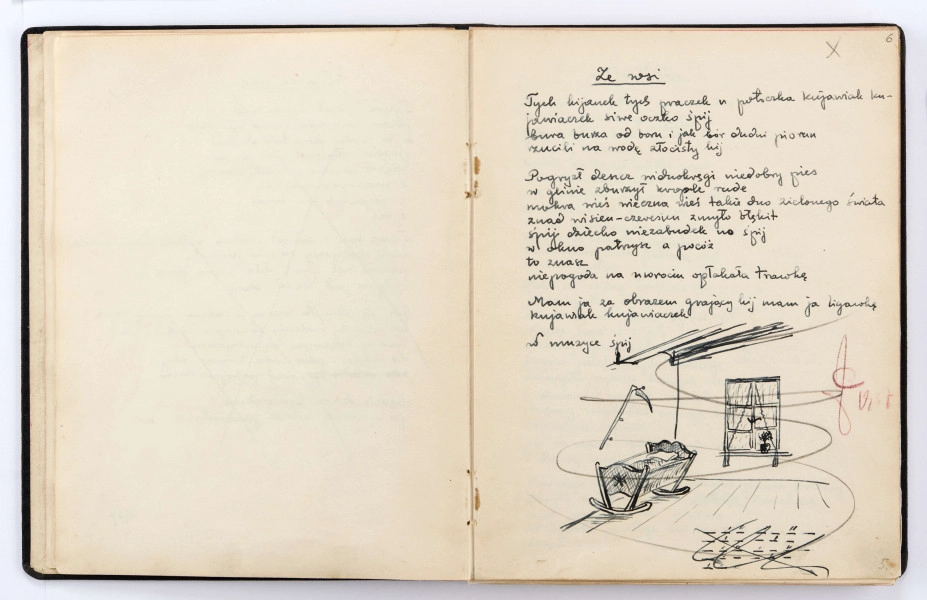 6
X
Ze wsi
Tych kijanek tych praczek u potoczka kujawiak ku-
jawiaczek siwe oczko śpij
Bura burza od boru i jak bór dudni piorun
rzucili na wodę złocisty kij
Pogryzł deszcz widnokręgi niedobry pies
w glinie zburzył krople rude
mokra wieś wieczna wieś takie dno zielonego świata
znad wisien-czereśni zmyło błękit
śpij dziecko niezabudek no śpij
w okno patrzysz a pocóż
to znasz
niepogoda na uroczu opłakała trawkę
Mam ja za obrazem grający kij mam ja ligawkę
kujawiak kujawiaczek
W muzyce śpij
5.